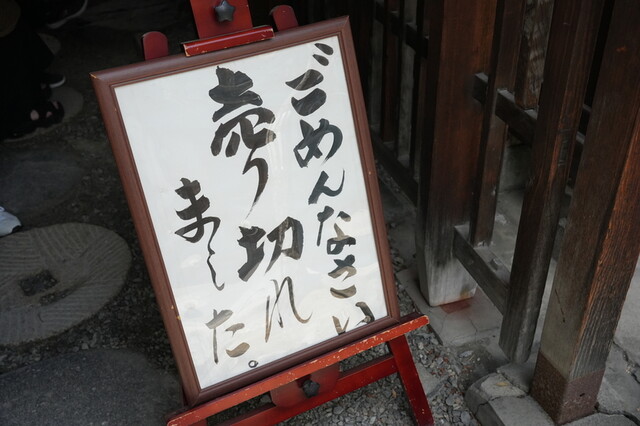 ごめんなさい
売り切れ
ました。